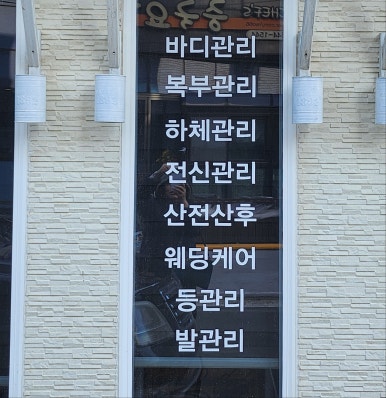 바디관리
복부관리
하체관리
전신관리
산전산후
웨딩케어
등관리
발관리